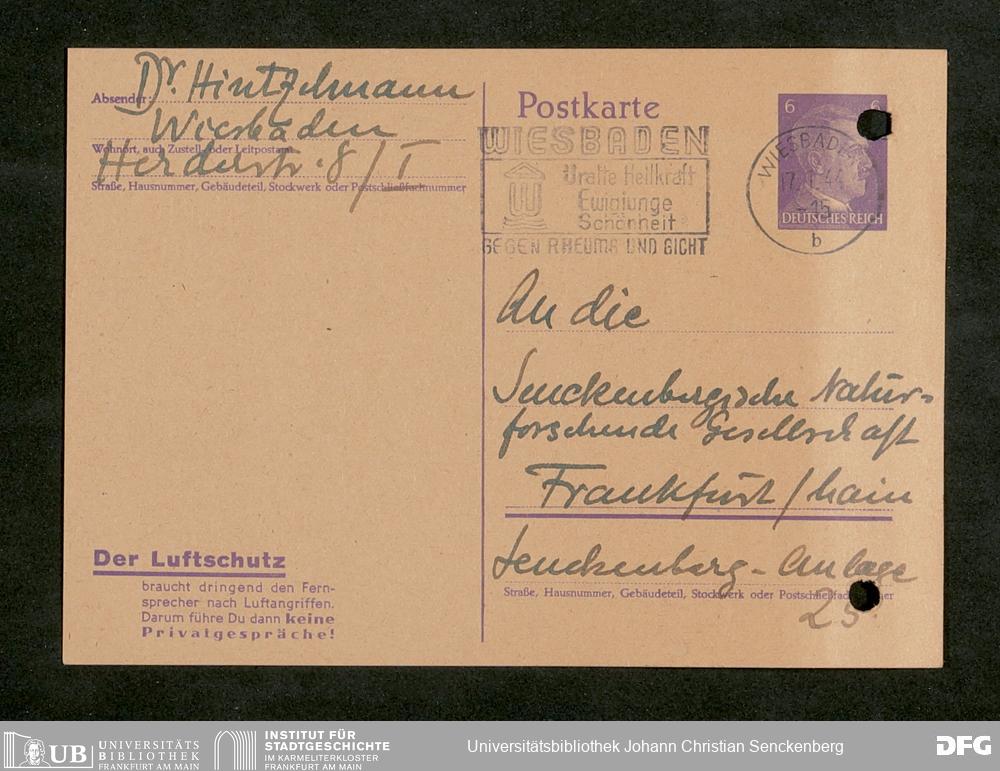 Dr. Hintzelmann
Absender:
Wiesbaden
Wohnort, auch Zustell- oder Leitpostamt
Herderstr. 8/I
Straße, Hausnummer, Gebäudeteil, Stockwerk oder Postschließfachnummer
Postkarte
6 6
DEUTSCHES REICH
WIESBADEN
17.1.44
-15
b
WIESBADEN
Uralte Heilkraft
Ewigjunge
Schönheit
GEGEN RHEUMA UND GICHT
An die
Senckenbergische Natur-
forschende Gesellschaft
Frankfurt/Main
Senckenberg-Anlage
Straße, Hausnummer, Gebäudeteil, Stockwerk oder Postschließfach
25.
Der Luftschutz
braucht dringend den Fern-
sprecher nach Luftangriffen.
Darum führe Du dann keine
Privatgespräche!
UB UNIVERSITÄTS
BIBLIOTHEK
FRANKFURT AM MAIN
INSTITUT FÜR
STADTGESCHICHTE
IM KARMELITERKLOSTER
FRANKFURT AM MAIN
Universitätsbibliothek Johann Christian Senckenberg
DFG